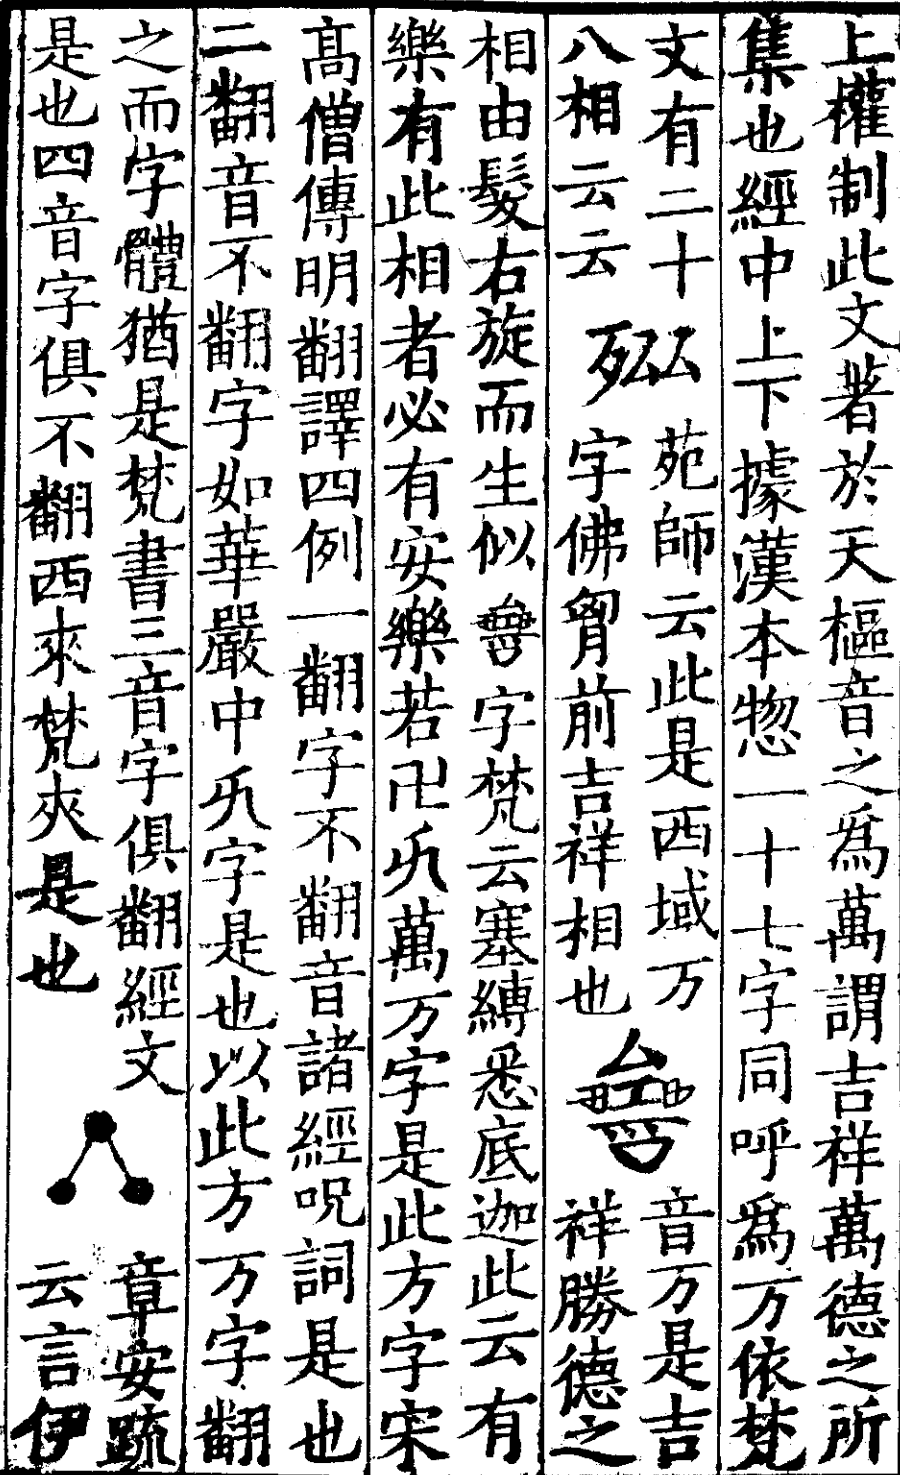 上權制此文著於天樞音之爲萬謂吉祥萬德之所
集也經中上下據漢本惣一十七字同呼爲万依梵
文有二十
八相云云
苑師云此是西域万
字佛胷前吉祥相也
音万是吉
祥勝德之
相由髮右旋而生似字梵云塞縛悉底迦此云有
樂有此相者必有安樂若卍𠀍萬万字是此方字宋
高僧傳明翻譯四例一翻字不翻音諸經呪詞是也
二翻音不翻字如華嚴中𠀍字是也以此方万字翻
之而字體猶是梵書三音字俱翻經文
是也四音字俱不翻西來梵夾是也
章安疏
云言伊